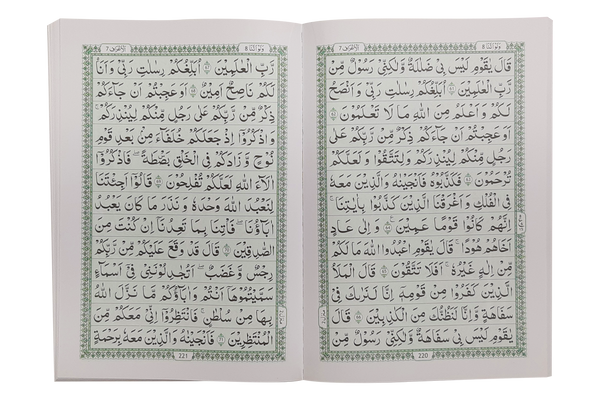 ولواننا 8
الاعراف 7
قَالَ يٰقَوْمِ لَيْسَ بِيْ ضَلٰلَةٌ وَّلٰكِنِّيْ رَسُوْلٌ مِّنْ
رَّبِّ الْعٰلَمِيْنَ ۝ اُبَلِّغُكُمْ رِسٰلٰتِ رَبِّيْ وَاَنْصَحُ
لَكُمْ وَاَعْلَمُ مِنَ اللّٰهِ مَا لَا تَعْلَمُوْنَ ۝
اَوَعَجِبْتُمْ اَنْ جَآءَكُمْ ذِكْرٌ مِّنْ رَّبِّكُمْ عَلٰى
رَجُلٍ مِّنْكُمْ لِيُنْذِرَكُمْ وَلِتَتَّقُوْا وَلَعَلَّكُمْ
تُرْحَمُوْنَ ۝ فَكَذَّبُوْهُ فَاَنْجَيْنٰهُ وَالَّذِيْنَ مَعَهٗ
فِي الْفُلْكِ وَاَغْرَقْنَا الَّذِيْنَ كَذَّبُوْا بِاٰيٰتِنَا ؕ
اِنَّهُمْ كَانُوْا قَوْمًا عَمِيْنَ ۝ وَاِلٰى عَادٍ
اَخَاهُمْ هُوْدًا ؕ قَالَ يٰقَوْمِ اعْبُدُوا اللّٰهَ مَا لَكُمْ
مِّنْ اِلٰهٍ غَيْرُهٗ ؕ اَفَلَا تَتَّقُوْنَ ۝ قَالَ الْمَلَاُ
الَّذِيْنَ كَفَرُوْا مِنْ قَوْمِهٖٓ اِنَّا لَنَرٰىكَ فِيْ
سَفَاهَةٍ وَّاِنَّا لَنَظُنُّكَ مِنَ الْكٰذِبِيْنَ ۝ قَالَ
يٰقَوْمِ لَيْسَ بِيْ سَفَاهَةٌ وَّلٰكِنِّيْ رَسُوْلٌ مِّنْ
220
ولواننا 8
الاعراف 7
رَّبِّ الْعٰلَمِيْنَ ۝ اُبَلِّغُكُمْ رِسٰلٰتِ رَبِّيْ وَاَنَا
لَكُمْ نَاصِحٌ اَمِيْنٌ ۝ اَوَعَجِبْتُمْ اَنْ جَآءَكُمْ
ذِكْرٌ مِّنْ رَّبِّكُمْ عَلٰى رَجُلٍ مِّنْكُمْ لِيُنْذِرَكُمْ ؕ
وَاذْكُرُوْٓا اِذْ جَعَلَكُمْ خُلَفَآءَ مِنْۢ بَعْدِ قَوْمِ
نُوْحٍ وَّزَادَكُمْ فِي الْخَلْقِ بَصْۜطَةً ۚ فَاذْكُرُوْٓا
اٰلَآءَ اللّٰهِ لَعَلَّكُمْ تُفْلِحُوْنَ ۝ قَالُوْٓا اَجِئْتَنَا
لِنَعْبُدَ اللّٰهَ وَحْدَهٗ وَنَذَرَ مَا كَانَ يَعْبُدُ
اٰبَآؤُنَا ۚ فَاْتِنَا بِمَا تَعِدُنَآ اِنْ كُنْتَ مِنَ
الصّٰدِقِيْنَ ۝ قَالَ قَدْ وَقَعَ عَلَيْكُمْ مِّنْ رَّبِّكُمْ
رِجْسٌ وَّغَضَبٌ ؕ اَتُجَادِلُوْنَنِيْ فِيْٓ اَسْمَآءٍ
سَمَّيْتُمُوْهَآ اَنْتُمْ وَاٰبَآؤُكُمْ مَّا نَزَّلَ اللّٰهُ
بِهَا مِنْ سُلْطٰنٍ ؕ فَانْتَظِرُوْٓا اِنِّيْ مَعَكُمْ مِّنَ
الْمُنْتَظِرِيْنَ ۝ فَاَنْجَيْنٰهُ وَالَّذِيْنَ مَعَهٗ بِرَحْمَةٍ
221